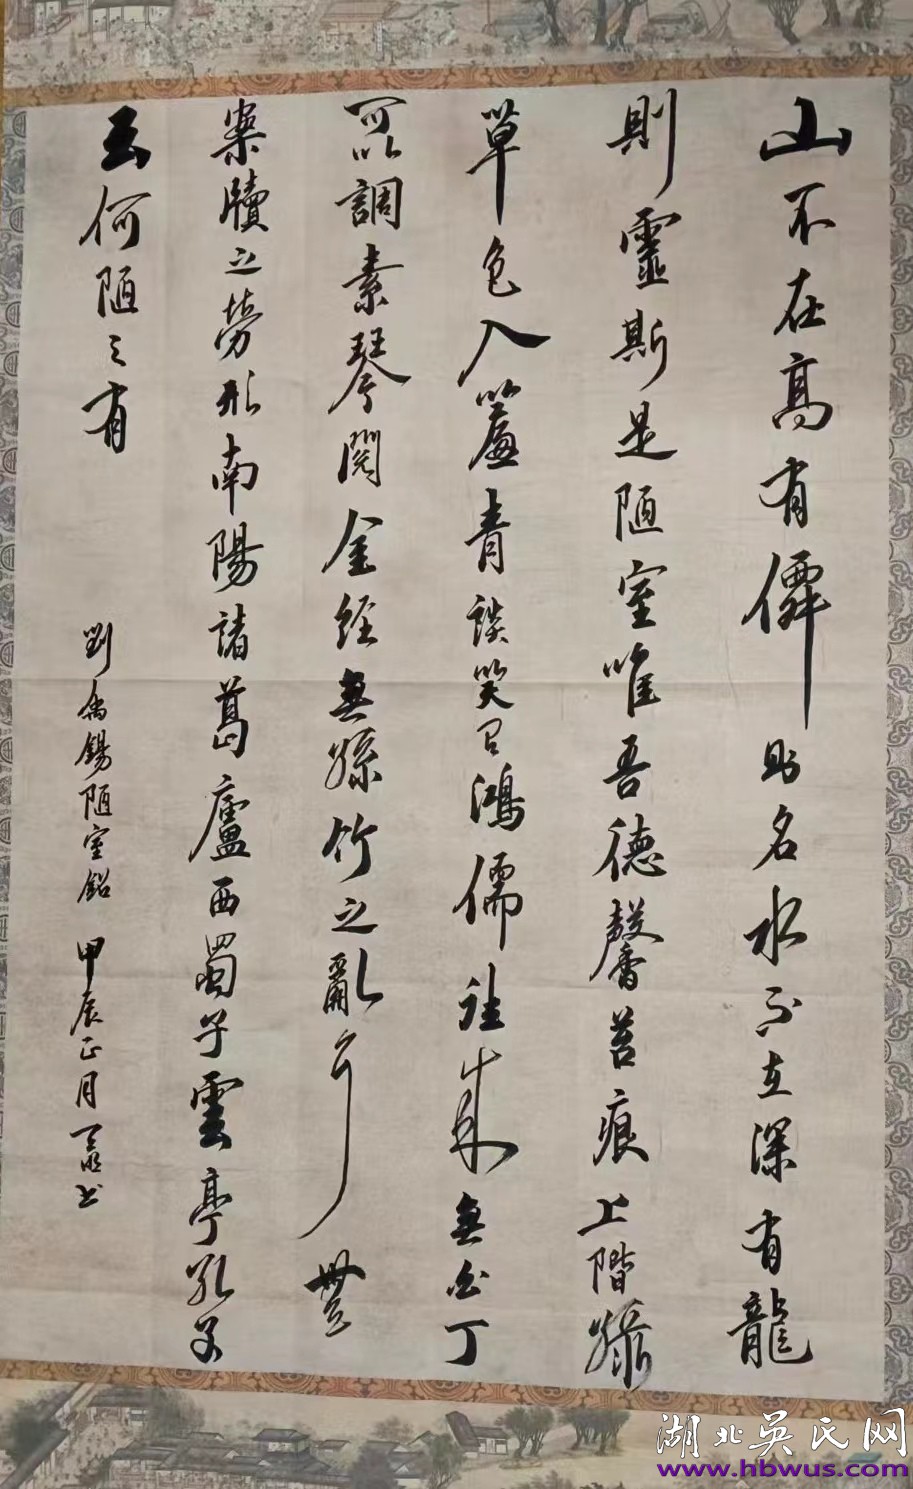 山不在高有僊則名水不在深有龍
則靈斯是陋室唯吾德馨苔痕上階綠
草色入簾青談笑有鴻儒往來無白丁
可以調素琴閱金經無絲竹之亂耳無
案牘之勞形南陽諸葛廬西蜀子雲亭孔子
云何陋之有
劉禹錫陋室銘 甲辰正月 書
湖北吴氏网
www.hbwus.com